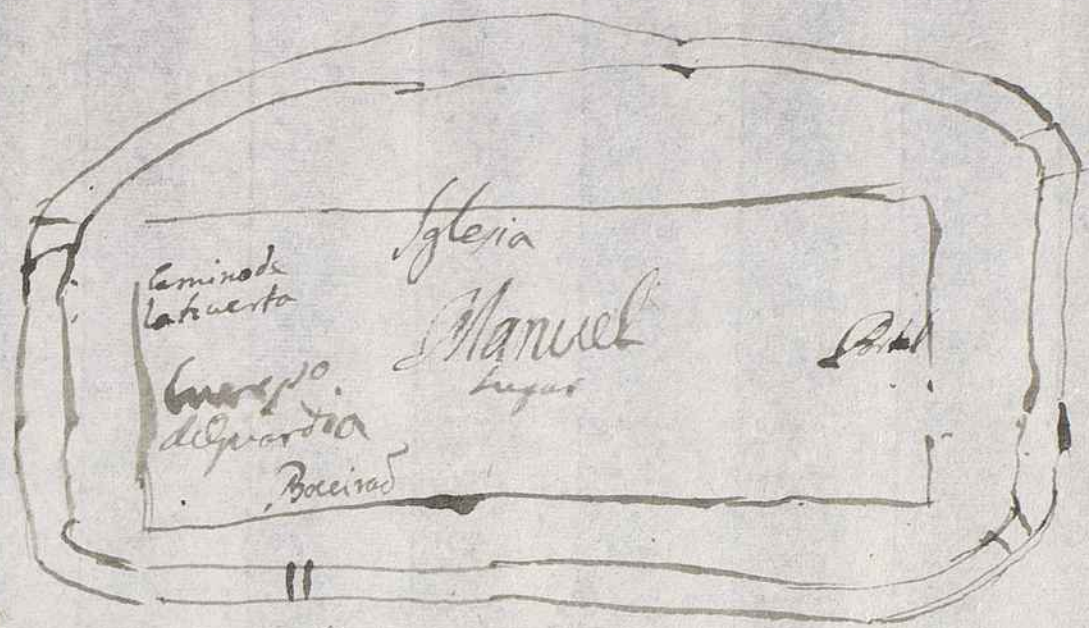 Iglesia
Camino de
la huerta
Manuel
Lugar
Portal
Cuerpo
de Guardia